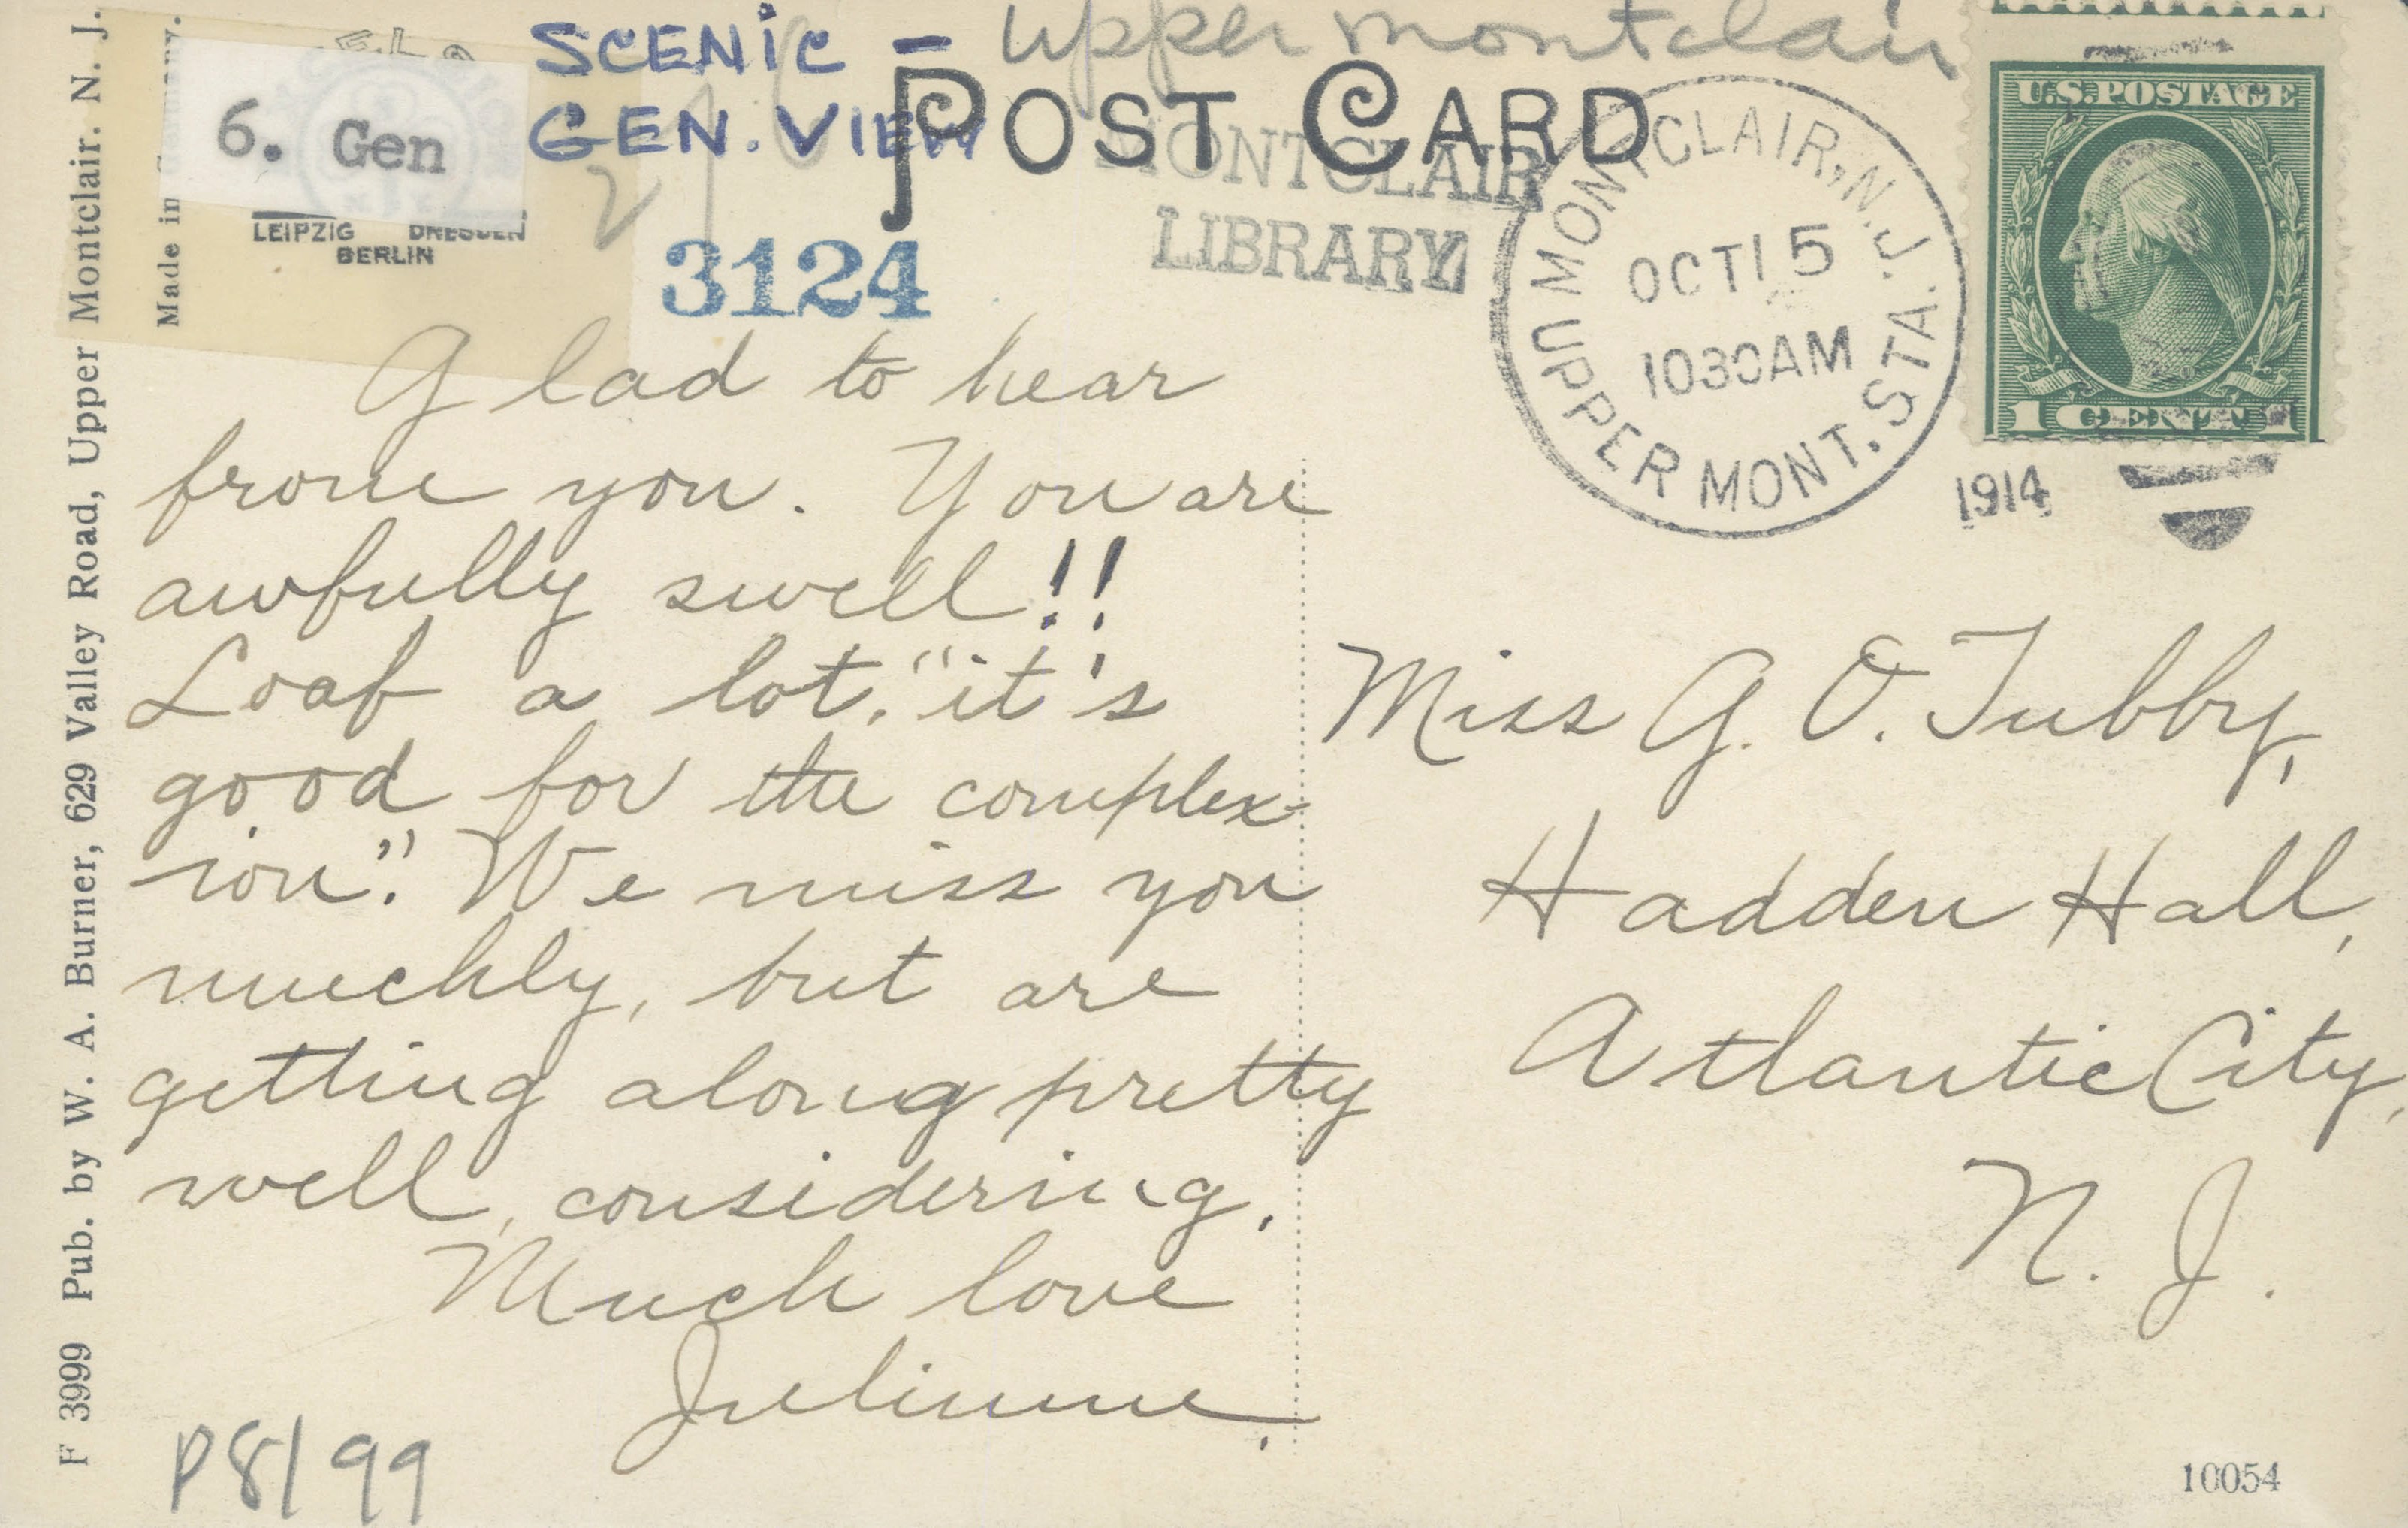 SCENIC - Upper Montclair
GEN. VIEW
6. Gen
POST CARD
MONTCLAIR
LIBRARY
LEIPZIG DRESDEN
BERLIN
3124
MONTCLAIR, N.J.
OCT 15
1030AM
UPPER MONT. STA.
1914
U.S. POSTAGE
1 CENT 1
F 3999 Pub. by W. A. Burner, 629 Valley Road, Upper Montclair. N. J.
Made in Germany.
Glad to hear
from you. You are
awfully swell!!
Loaf a lot, "it's
good for the complex-
ion". We miss you
muchly, but are
getting along pretty
well, considering.
Much love
Julimme.
Miss G. O. Tubby,
Hadden Hall,
Atlantic City,
N. J.
P8199
10054